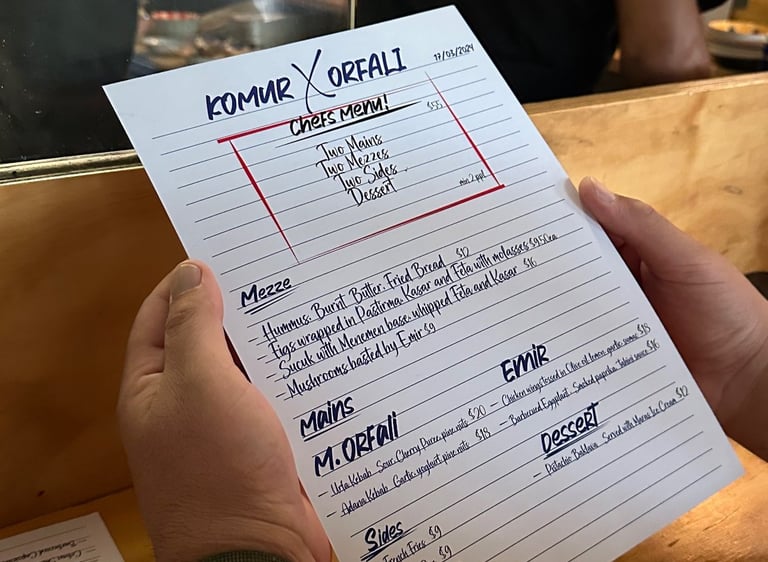 KOMUR X ORFALI
17/03/2024
Chefs Menu!
$55
Two Mains
Two Mezzes
Two Sides
Dessert
min 2 ppl.
Mezze
- Hummus. Burnt Butter. Fried Bread $12
- Figs wrapped in Pastirma. Kasar and Feta with molasses $9.50ea
- Sucuk with Menemen base. whipped Feta and Kasar $16
- Mushrooms basted by Emir $9
Mains
M. ORFALI
- Urfa Kebab. Sour Cherry Puree, pine nuts $20
- Adana Kebab. Garlic yoghurt, pine nuts $18
EMIR
- Chicken wings tossed in Olive oil, lemon, garlic, sumac $15
- Barbecued Eggplant. Smoked paprika. Tahini sauce $16
Dessert
- Pistachio Baklava. Served with Maras Ice Cream $12
Sides
French Fries $9
$9